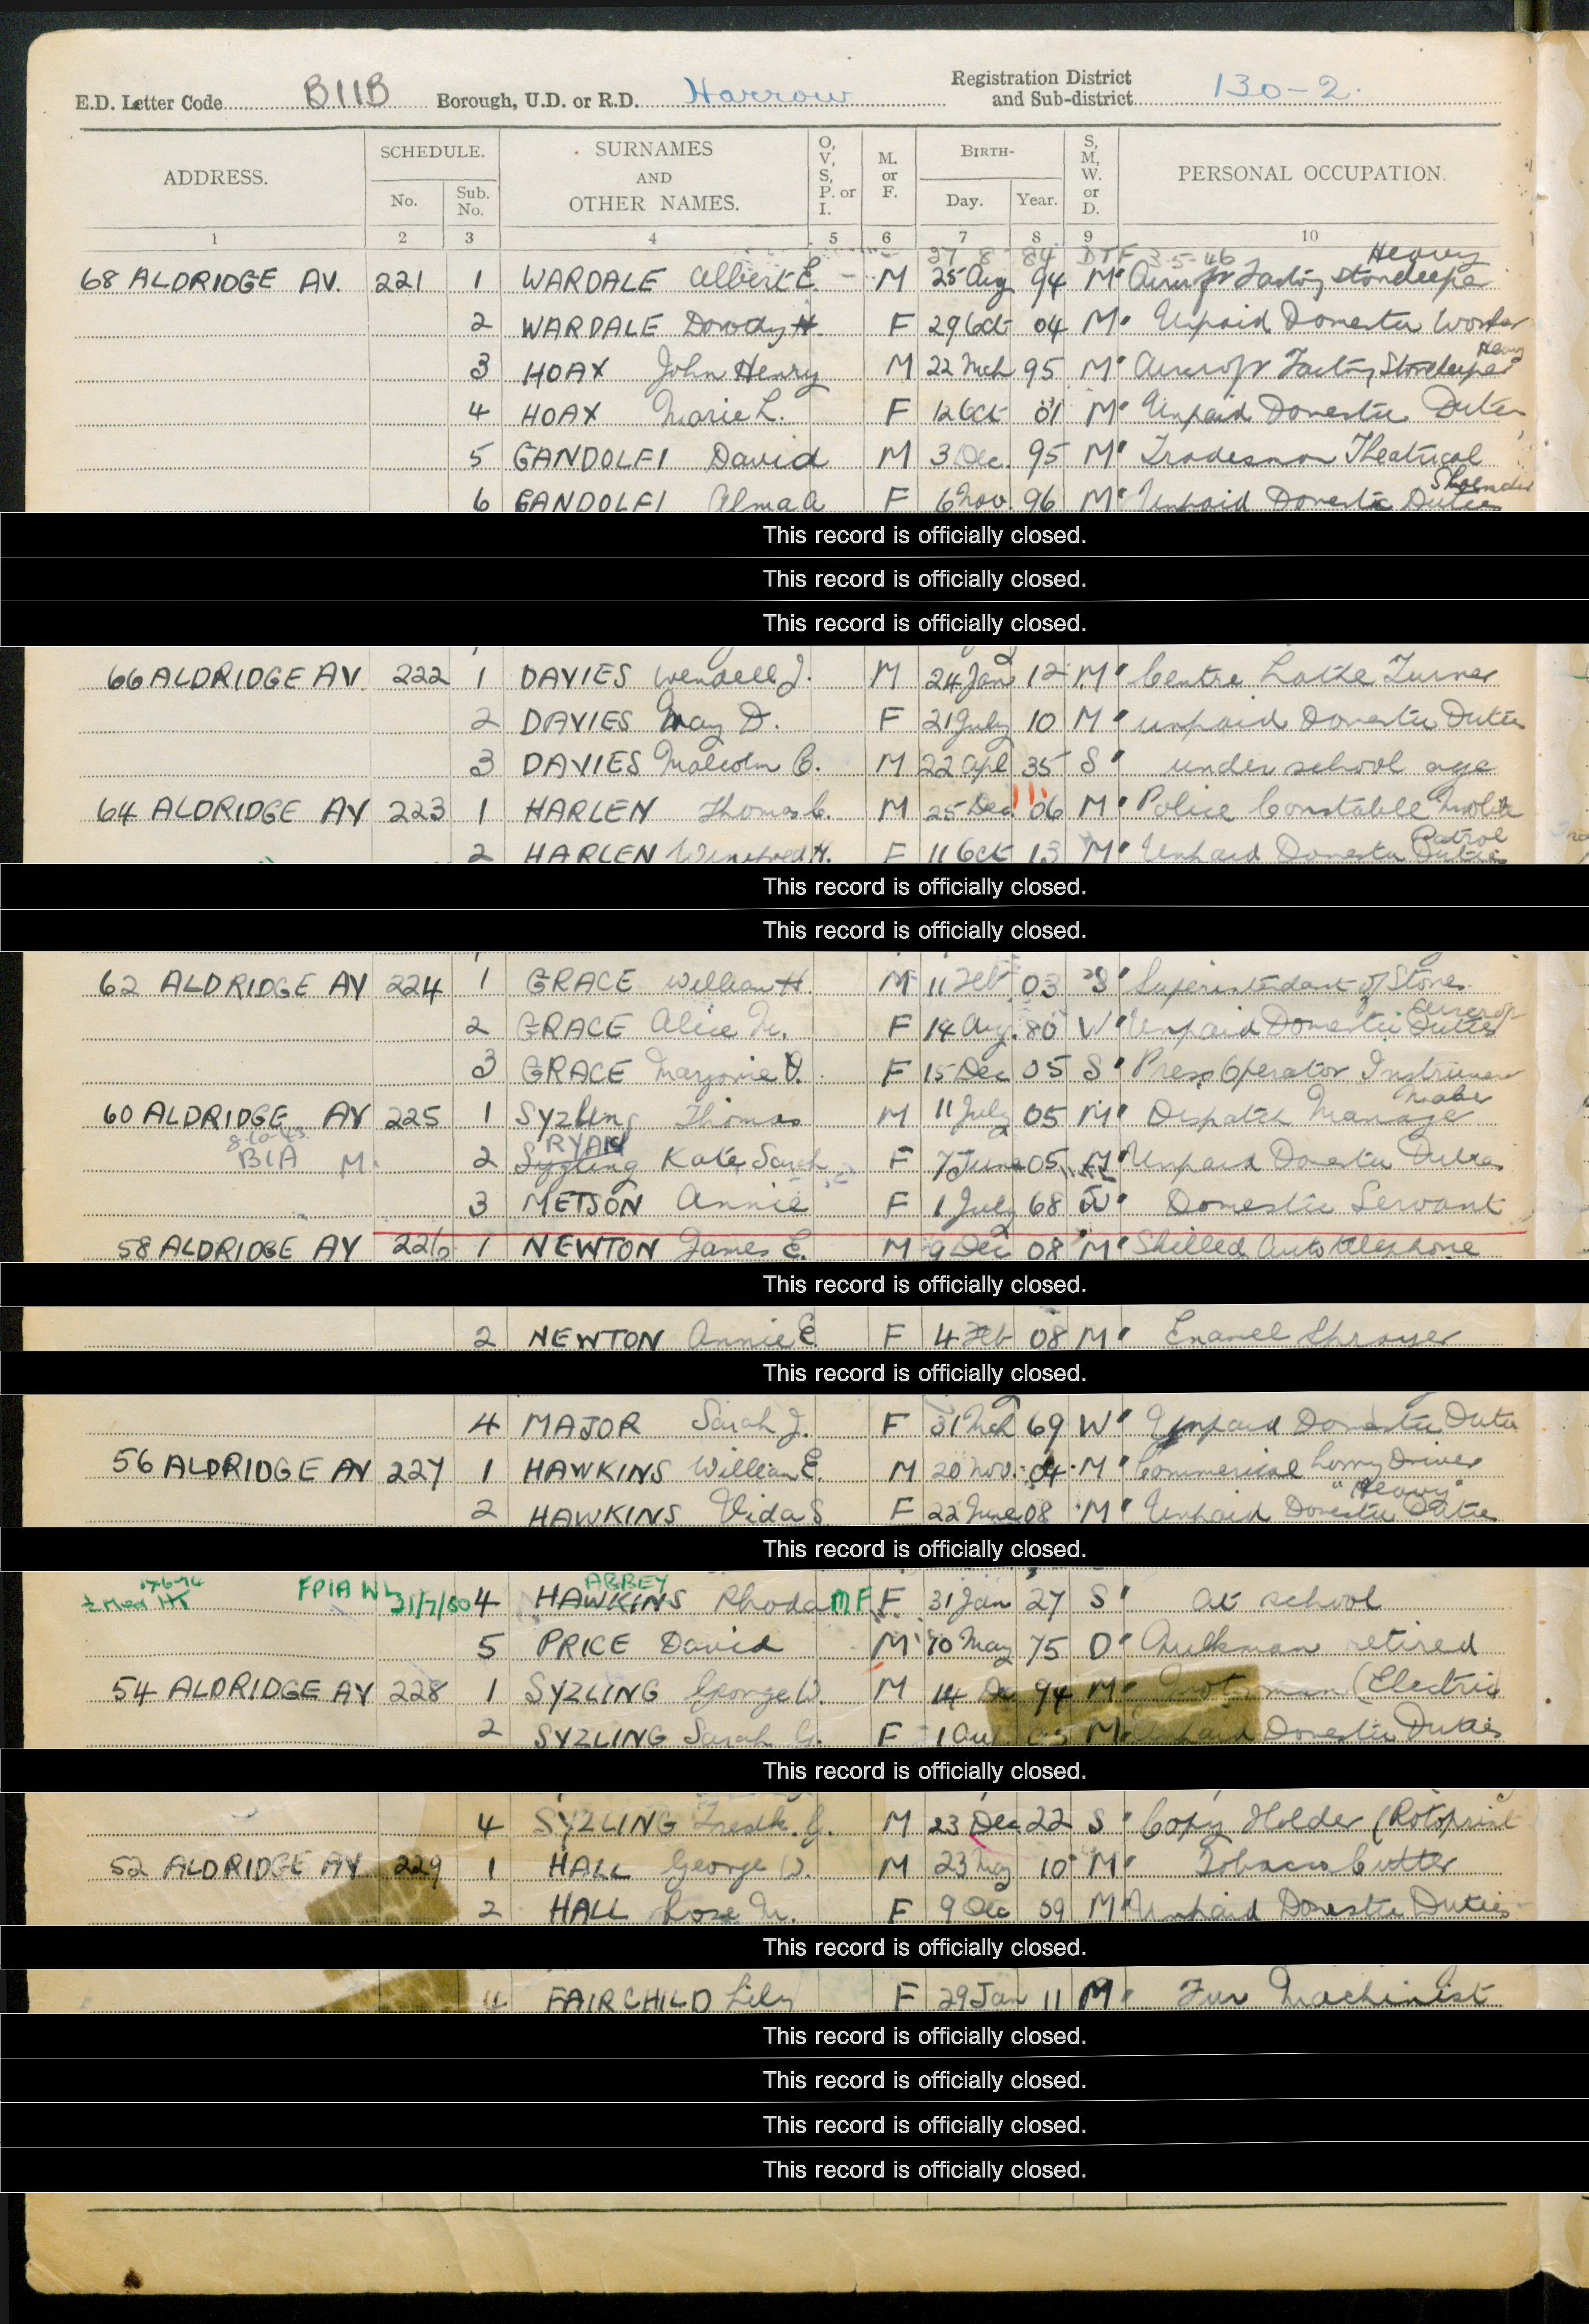 E.D. Letter Code B11B Borough, U.D. or R.D. Harrow Registration District and Sub-district 130-2.
ADDRESS. SCHEDULE. No. Sub. No. SURNAMES AND OTHER NAMES. O, V, S, P. or I. M. or F. BIRTH- Day. Year. S, M, W. or D. PERSONAL OCCUPATION.
1 2 3 4 5 6 7 8 9 10
27 8 84 DTF 3-5-46 Heavy
68 ALDRIDGE AV. 221 1 WARDALE Albert E. - M 25 Aug 94 M Storekeeper
2 WARDALE Dorothy H F 29 Oct 04 M Unpaid Domestic Worker
Heavy
3 HOAX John Henry M 22 Mch 95 M Storekeeper
4 HOAX Marie L. F 12 Oct 01 M Unpaid Domestic Duties
5 GANDOLFI David M 3 Dec. 95 M Tradesman Theatrical
6 GANDOLFI Alma A F 6 Nov. 96 M Unpaid Domestic Duties
This record is officially closed.
This record is officially closed.
This record is officially closed.
66 ALDRIDGE AV. 222 1 DAVIES Wendell J. M 24 Jan 12 M Centre Lathe Turner
2 DAVIES May D. F 21 July 10 M unpaid Domestic Duties
3 DAVIES Malcolm C. M 22 Apl 35 S under school age
64 ALDRIDGE AV 223 1 HARLEN Thomas C. M 25 Dec 06 M Police Constable Mobile
Patrol
2 HARLEN Winifred H. F 11 Oct 13 M Unpaid Domestic Duties
This record is officially closed.
This record is officially closed.
62 ALDRIDGE AV 224 1 GRACE William H. M 11 Feb 03 S Superintendant of Stores
Aircraft
2 GRACE Alice M. F 14 Aug. 80 W Unpaid Domestic Duties
3 GRACE Marjorie V. F 15 Dec 05 S Press Operator Instrument
Maker
60 ALDRIDGE AV 225 1 Syzling Thomas M 11 July 05 M Dispatch Manager
8-10-43 RYAN
B1A M. 2 Syzling Kate Sarah F 7 June 05 M Unpaid Domestic Duties
3 METSON Annie F 1 July 68 W Domestic Servant
58 ALDRIDGE AV 226 1 NEWTON James E. M 9 Dec 08 M Skilled Auto telephone
This record is officially closed.
2 NEWTON Annie E F 4 Feb 08 M Enamel Sprayer
This record is officially closed.
4 MAJOR Sarah J. F 31 Mch 69 W Unpaid Domestic Duties
56 ALDRIDGE AV 227 1 HAWKINS William E. M 20 Nov. 04 M Commerical Lorry Driver
"Heavy"
2 HAWKINS Vida S F 22 June 08 M Unpaid Domestic Duties
This record is officially closed.
FPIA ABBEY
31/7/80 4 HAWKINS Rhoda MF F 31 Jan 27 S at school
5 PRICE David M 10 May 75 D retired
54 ALDRIDGE AV 228 1 SYZLING George W. M 14 De 94 M Motorman (Electric
2 SYZLING Sarah G. F 1 Aug M Unpaid Domestic Duties
This record is officially closed.
4 SYZLING Fredk. G. M 23 Dec 22 S Copy Holder (Rotoprint
52 ALDRIDGE AV. 229 1 HALL George W. M 23 May 10 M Tobacco Cutter
2 HALL Rose M. F 9 Dec 09 M Unpaid Domestic Duties
This record is officially closed.
4 FAIRCHILD Lily F 29 Jan 11 M Fur Machinist
This record is officially closed.
This record is officially closed.
This record is officially closed.
This record is officially closed.